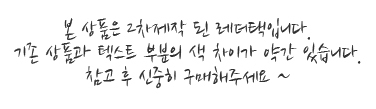 본 상품은 2차제작 된 레더택입니다.
기존 상품과 텍스트 부분의 색 차이가 약간 있습니다.
참고 후 신중히 구매해주세요 ~